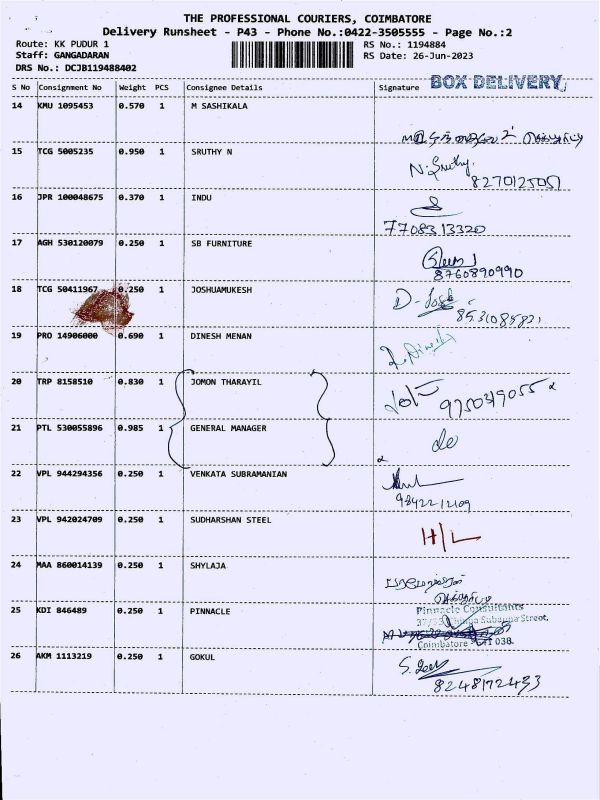 THE PROFESSIONAL COURIERS, COIMBATORE
Delivery Runsheet - P43 - Phone No.:0422-3505555 - Page No.:2
Route: KK PUDUR 1 RS No.: 1194884
Staff: GANGADARAN RS Date: 26-Jun-2023
DRS No.: DCJB119488402
BOX DELIVERY
S No Consignment No Weight PCS Consignee Details Signature
14 KMU 1095453 0.570 1 M SASHIKALA
15 TCG 5005235 0.950 1 SRUTHY N N. Sruthy
16 JPR 100048675 0.370 1 INDU
7708313320
17 AGH 530120079 0.250 1 SB FURNITURE
8760890990
18 TCG 50411967 0.250 1 JOSHUAMUKESH
19 PRO 14906000 0.690 1 DINESH MENAN
20 TRP 8158510 0.830 1 JOMON THARAYIL
21 PTL 530055896 0.985 1 GENERAL MANAGER do
22 VPL 944294356 0.250 1 VENKATA SUBRAMANIAN
9842212109
23 VPL 942024709 0.250 1 SUDHARSHAN STEEL H/L
24 MAA 860014139 0.250 1 SHYLAJA
25 KDI 846489 0.250 1 PINNACLE Pinnacle Consultants
Subanna Street,
Coimbatore 038.
26 AKM 1113219 0.250 1 GOKUL
8248172433